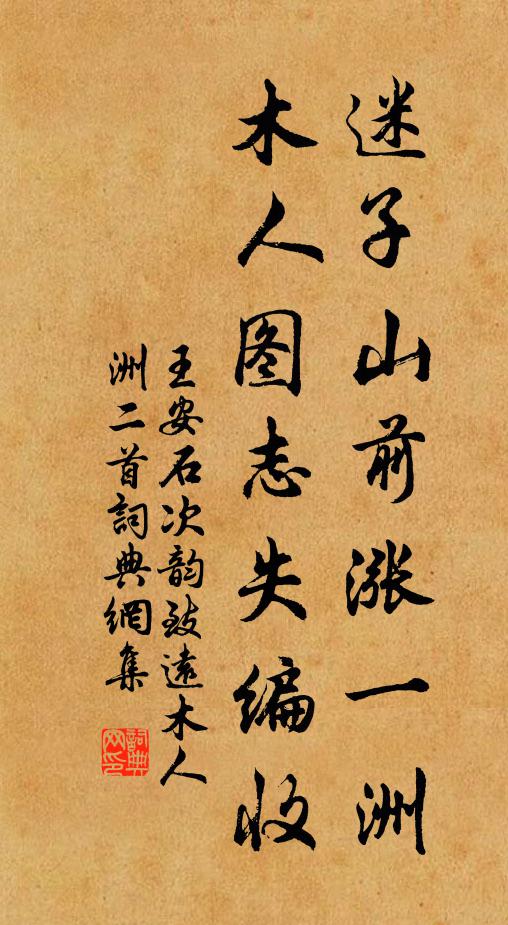 迷子山前涨一洲
木人图志失编收
王安石次韵致遠木人
洲二首詞典網集
詞典
网印